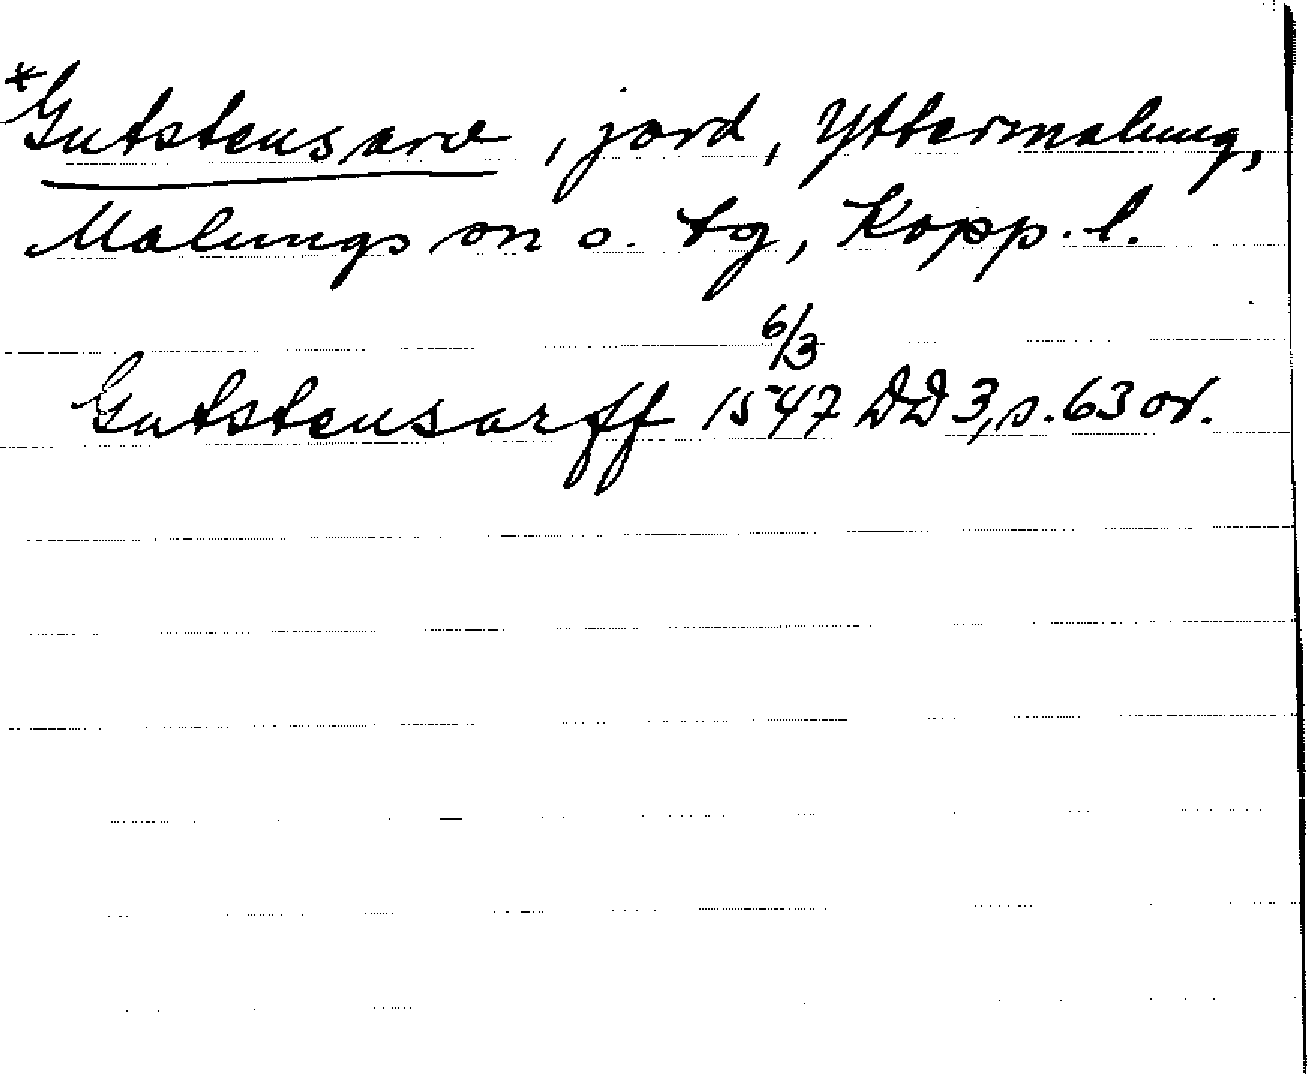 *Gutstensarve, jord, Yttermalung,
Malungs sn o. tg, Kopp. l.
6/3
Gutstensarff 1547 DD 3, s. 63 or.